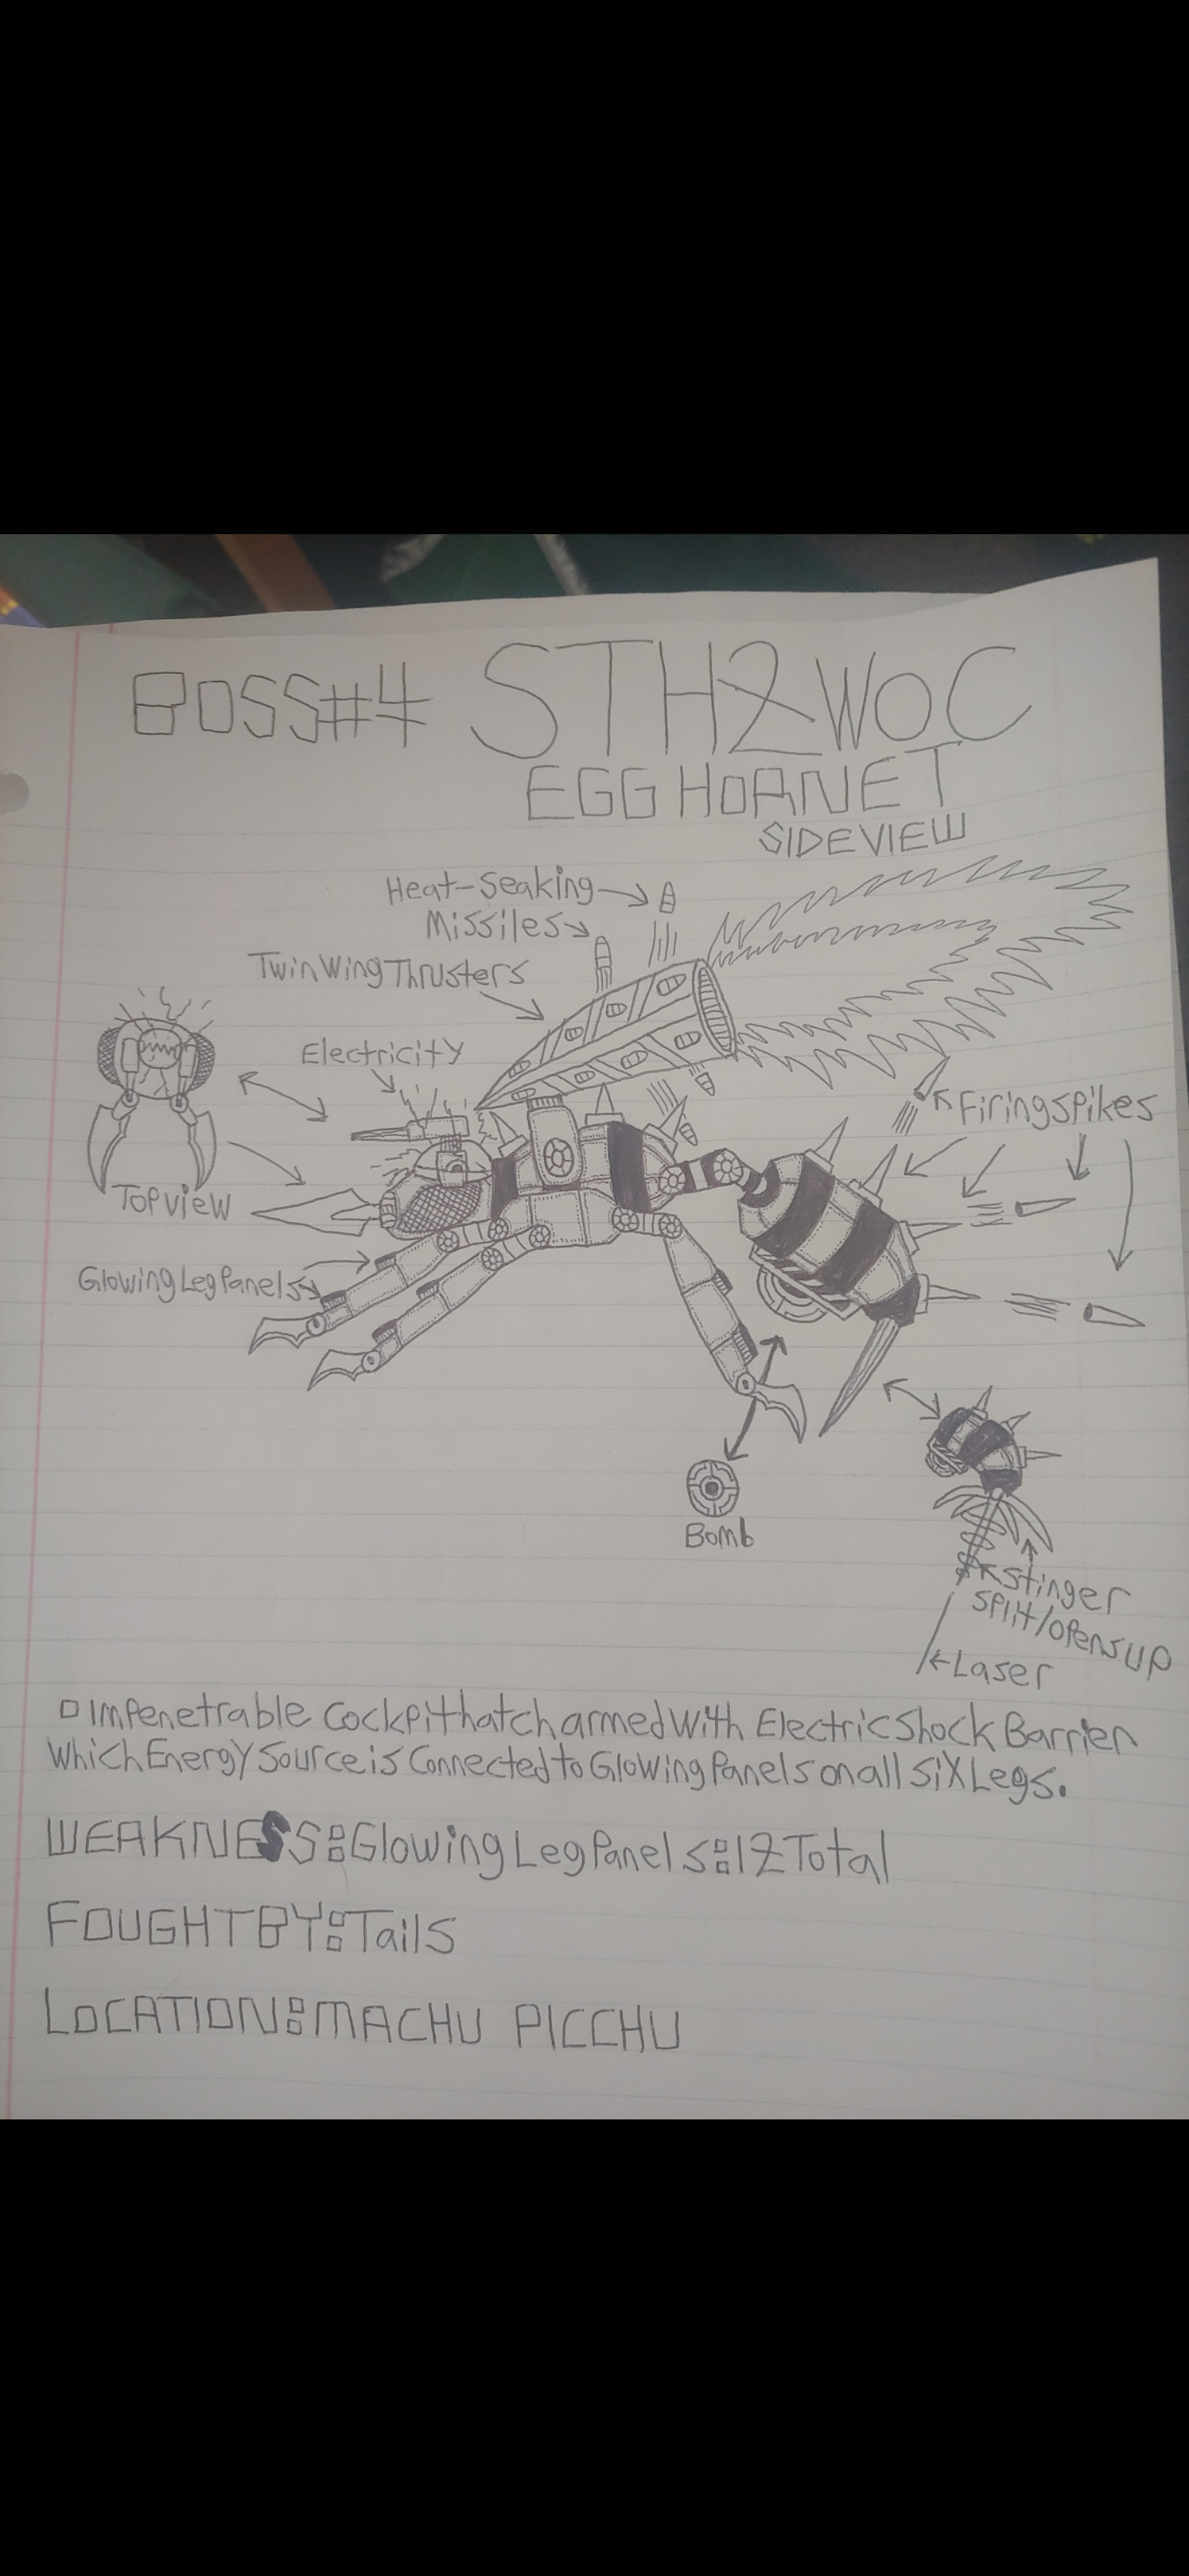 BOSS#4 STH2WOC
EGG HORNET
SIDEVIEW
Heat-Seaking
Missiles
Twin Wing Thrusters
Electricity
Firing spikes
Top view
Glowing Leg Panels
Bomb
Stinger
split/opens up
Laser
Impenetrable Cockpit hatch armed with Electric Shock Barrier
which Energy Source is Connected to Glowing Panels on all six Legs.
WEAKNESS: Glowing Leg Panels: 12 Total
FOUGHT BY: Tails
LOCATION: MACHU PICCHU